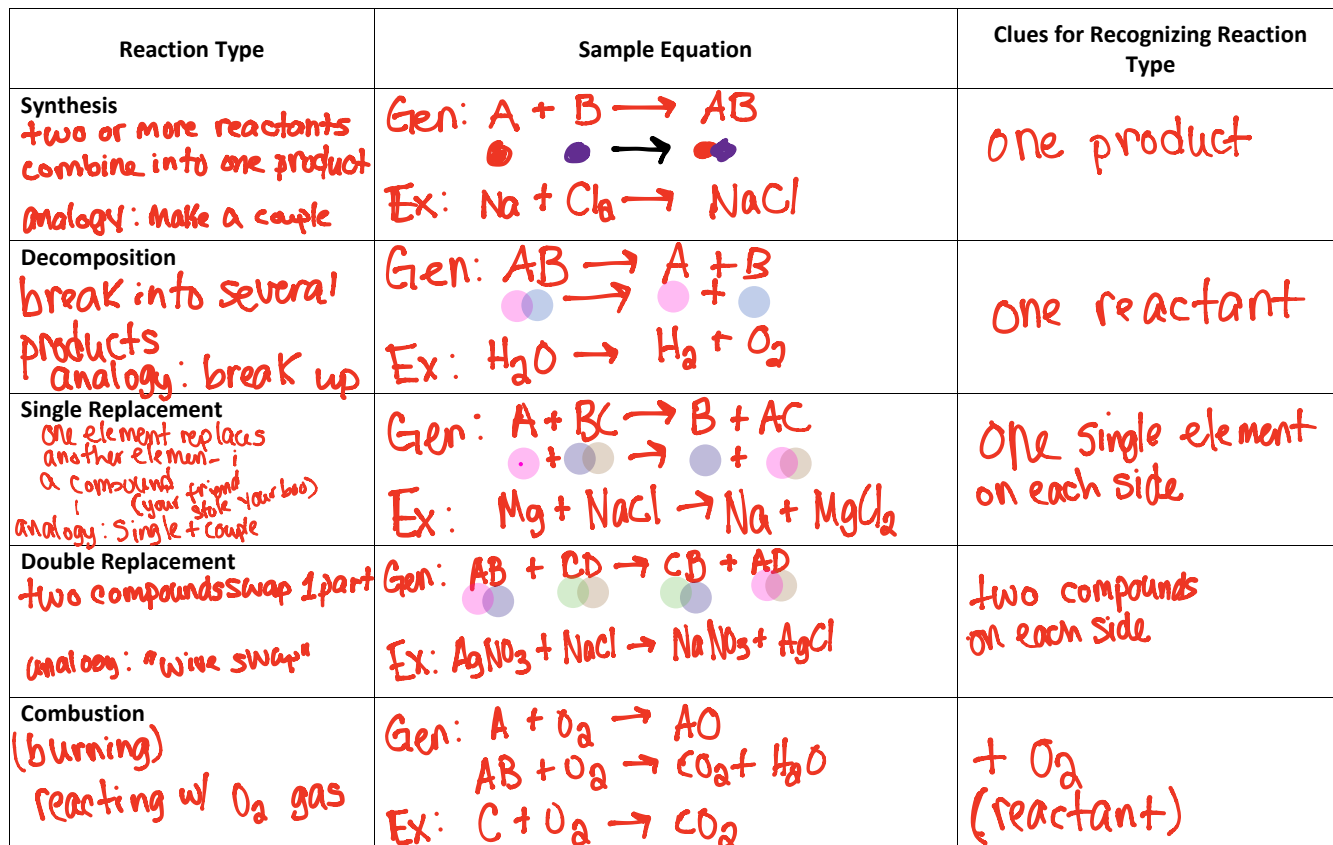 Reaction Type
Sample Equation
Clues for Recognizing Reaction
Type
Synthesis
two or more reactants
combine into one product
analogy: make a couple
Gen: A + B → AB
→
Ex: Na + Cl₂ → NaCl
one product
Decomposition
break into several
products
analogy: break up
Gen: AB → A + B
→ +
Ex: H₂O → H₂ + O₂
one reactant
Single Replacement
one element replaces
another
a compound
(your friend
stole your boo)
analogy: single + couple
Gen: A + BC → B + AC
+ → +
Ex: Mg + NaCl → Na + MgCl₂
one single element
on each side
Double Replacement
two compounds swap 1 part
analogy: "wive swap"
Gen: AB + CD → CB + AD
Ex: AgNO₃ + NaCl → NaNO₃ + AgCl
two compounds
on each side
Combustion
(burning)
reacting w/ O₂ gas
Gen: A + O₂ → AO
AB + O₂ → CO₂ + H₂O
Ex: C + O₂ → CO₂
+ O₂
(reactant)